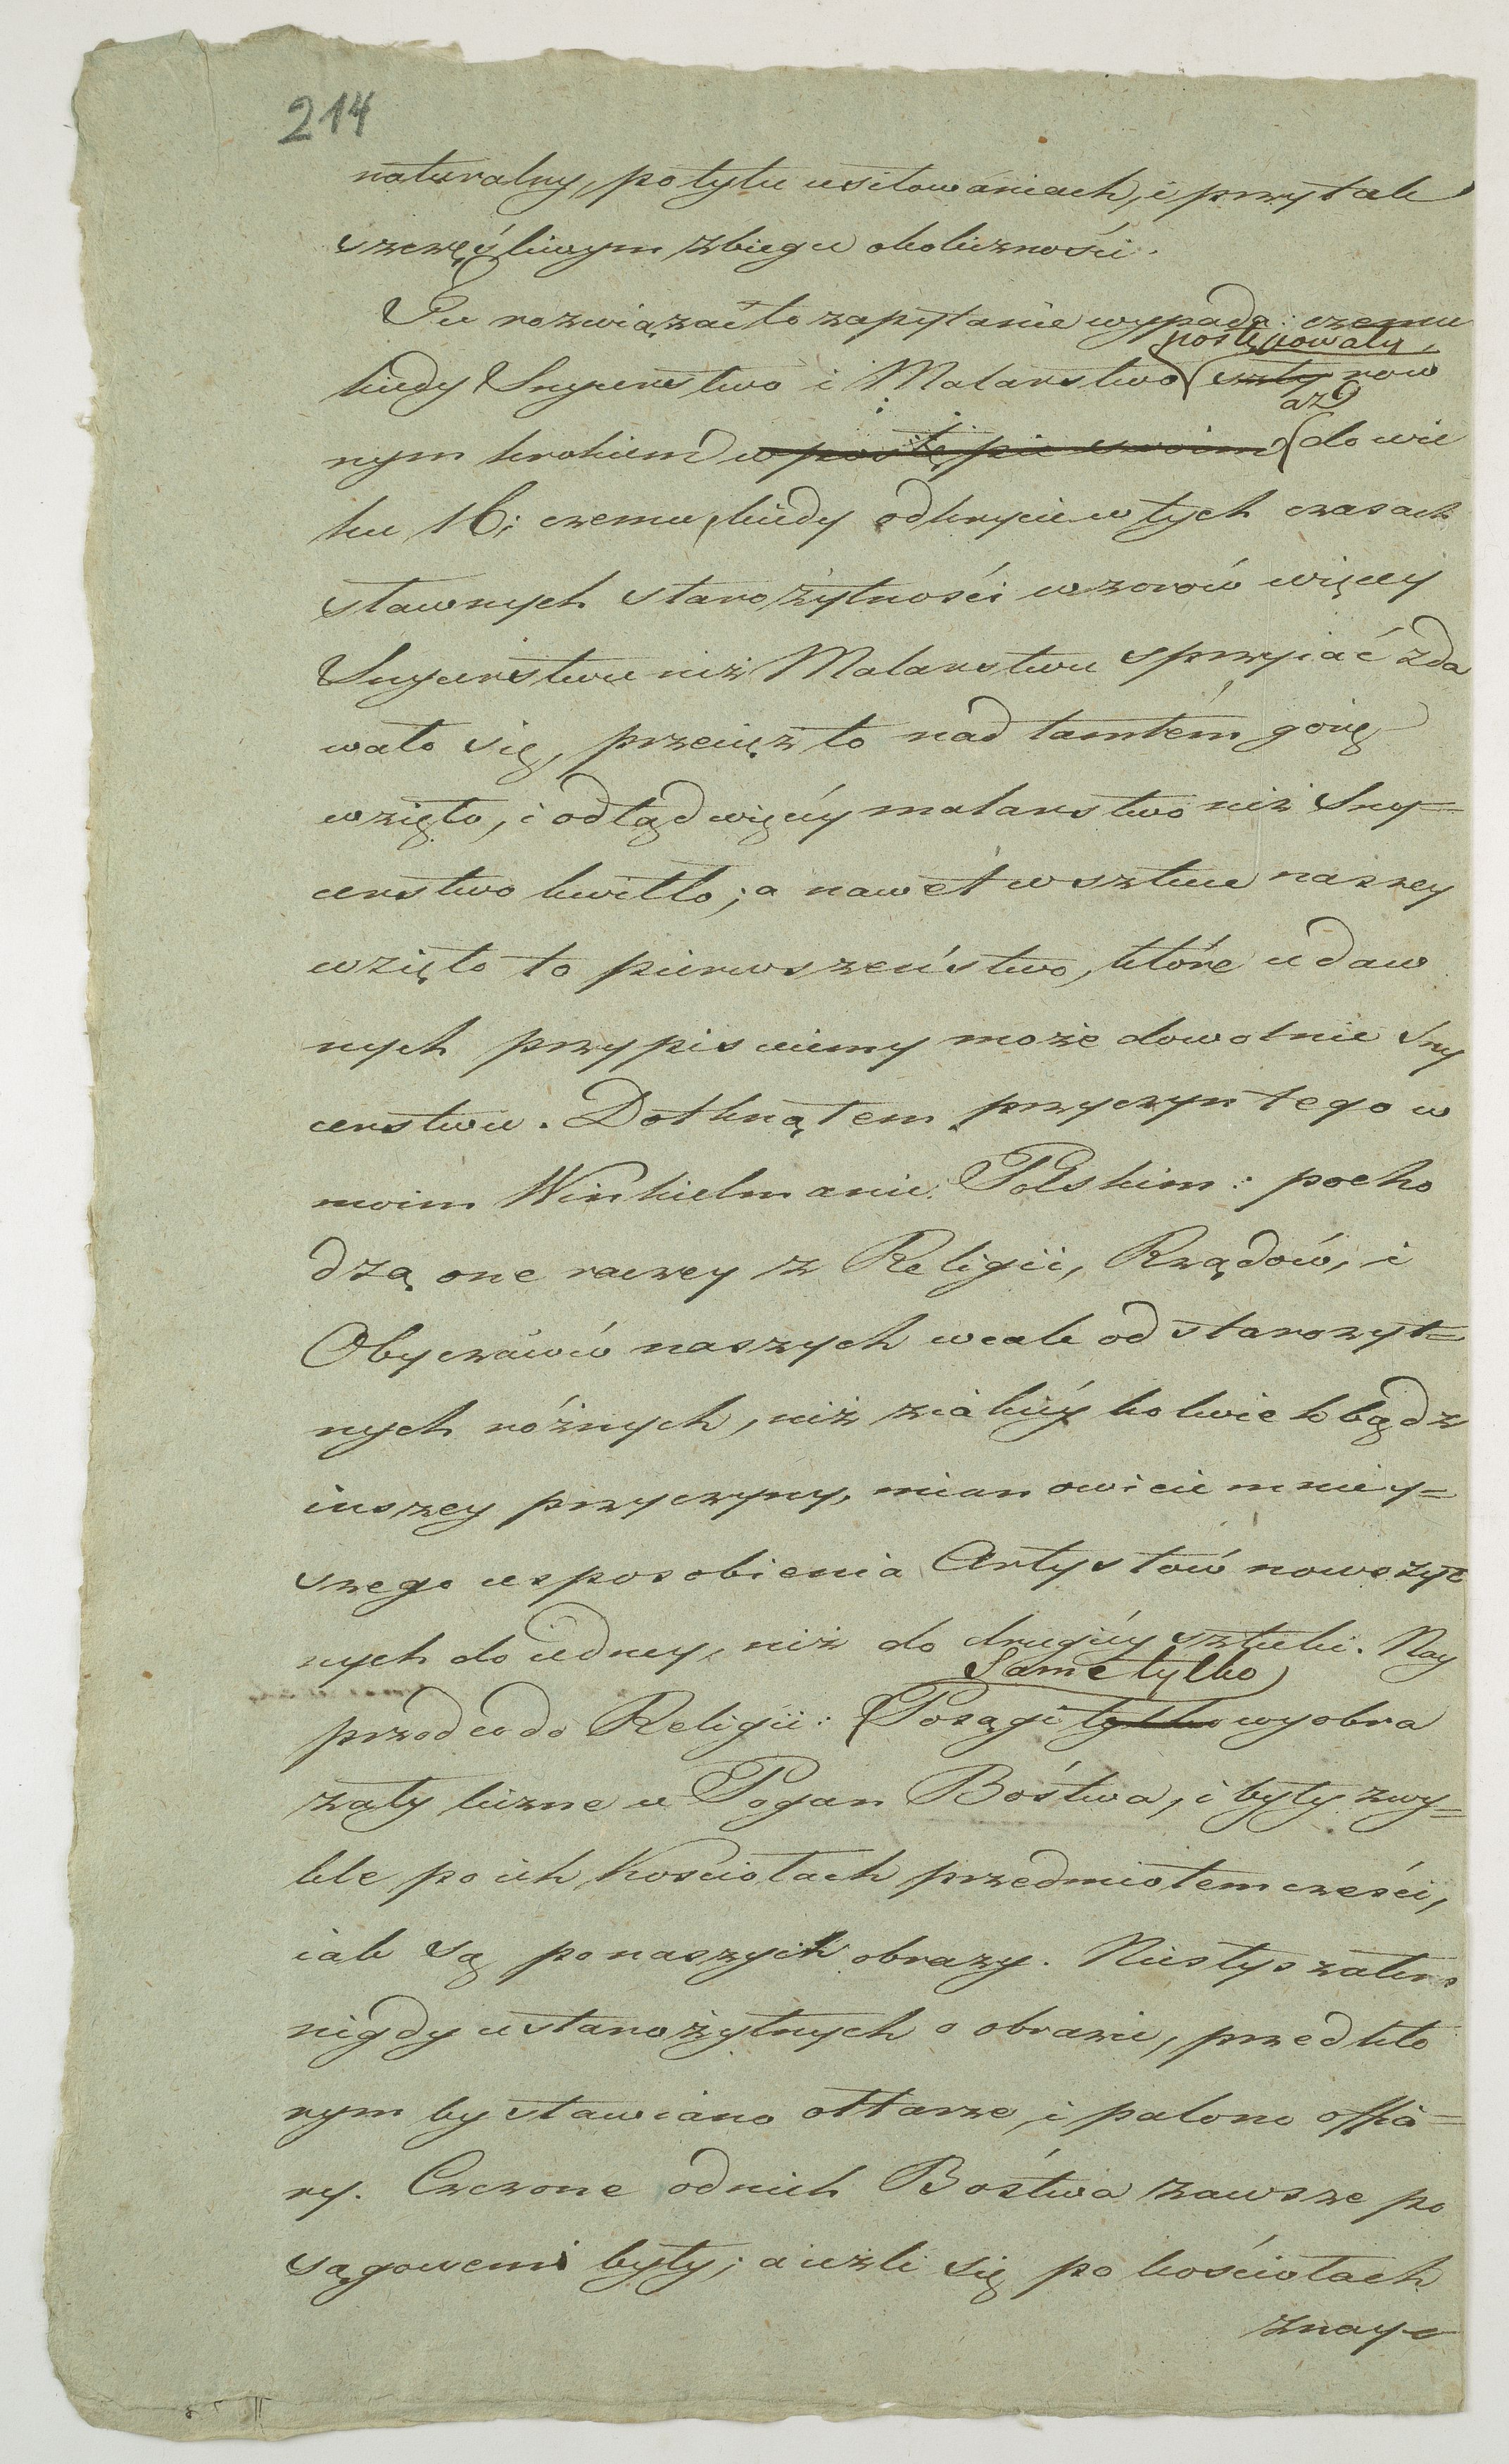 214
naturalny, po tylu usiłowaniach, i przy tak
szczęśliwym zbiegu okoliczności.
Tu rozwiązać to zapytanie wypada: czemu
postępowały,
kiedy Snycerstwo i Malarstwo szły row
aż
nym krokiem w postępie swoim do wie
ku 16; czemu, kiedy odkrycie w tych czasach
sławnych starożytności wzorów więcey
Snycerstwu niż Malarstwu sprzyiać zda
wało się, przecięż to nad tamtém górę
wzięło, i odtąd więcéy malarstwo niż Sny=
cerstwo kwitło; a nawet w sztuce naszey
wzięło to pierwszeństwo, które u daw
nych przypisuiemy może dowolnie Sny
cerstwu. Dotknąłem przyczyn tego w
moim Winkielmanie Polskim: pocho
dzą one raczey z Religii, Rządów, i
Obyczaiów naszych wcale od starożyt=
nych różnych, niż z iakiéy kolwiek bądz
inszey przyczyny, mianowicie mniey=
szego usposobienia Artystów nowożyt
nych do iedney, niż do drugiéy sztuki. Nay
Same tylko
przod co do Religii: Posągi tylko wyobra
zały liczne u Pogan Bóstwa, i były zwy=
kle po ich Kościołach przedmiotem cześci,
iak są po naszych obrazy. Niesłyszałem
nigdy u starożytnych o obrazie, przed któ
rym by stawiano ołtarze, i palono offia=
ry. Czczone od nich Bóstwa zawsze po
sągowemi były; a ieżli się po kościołach
znay=